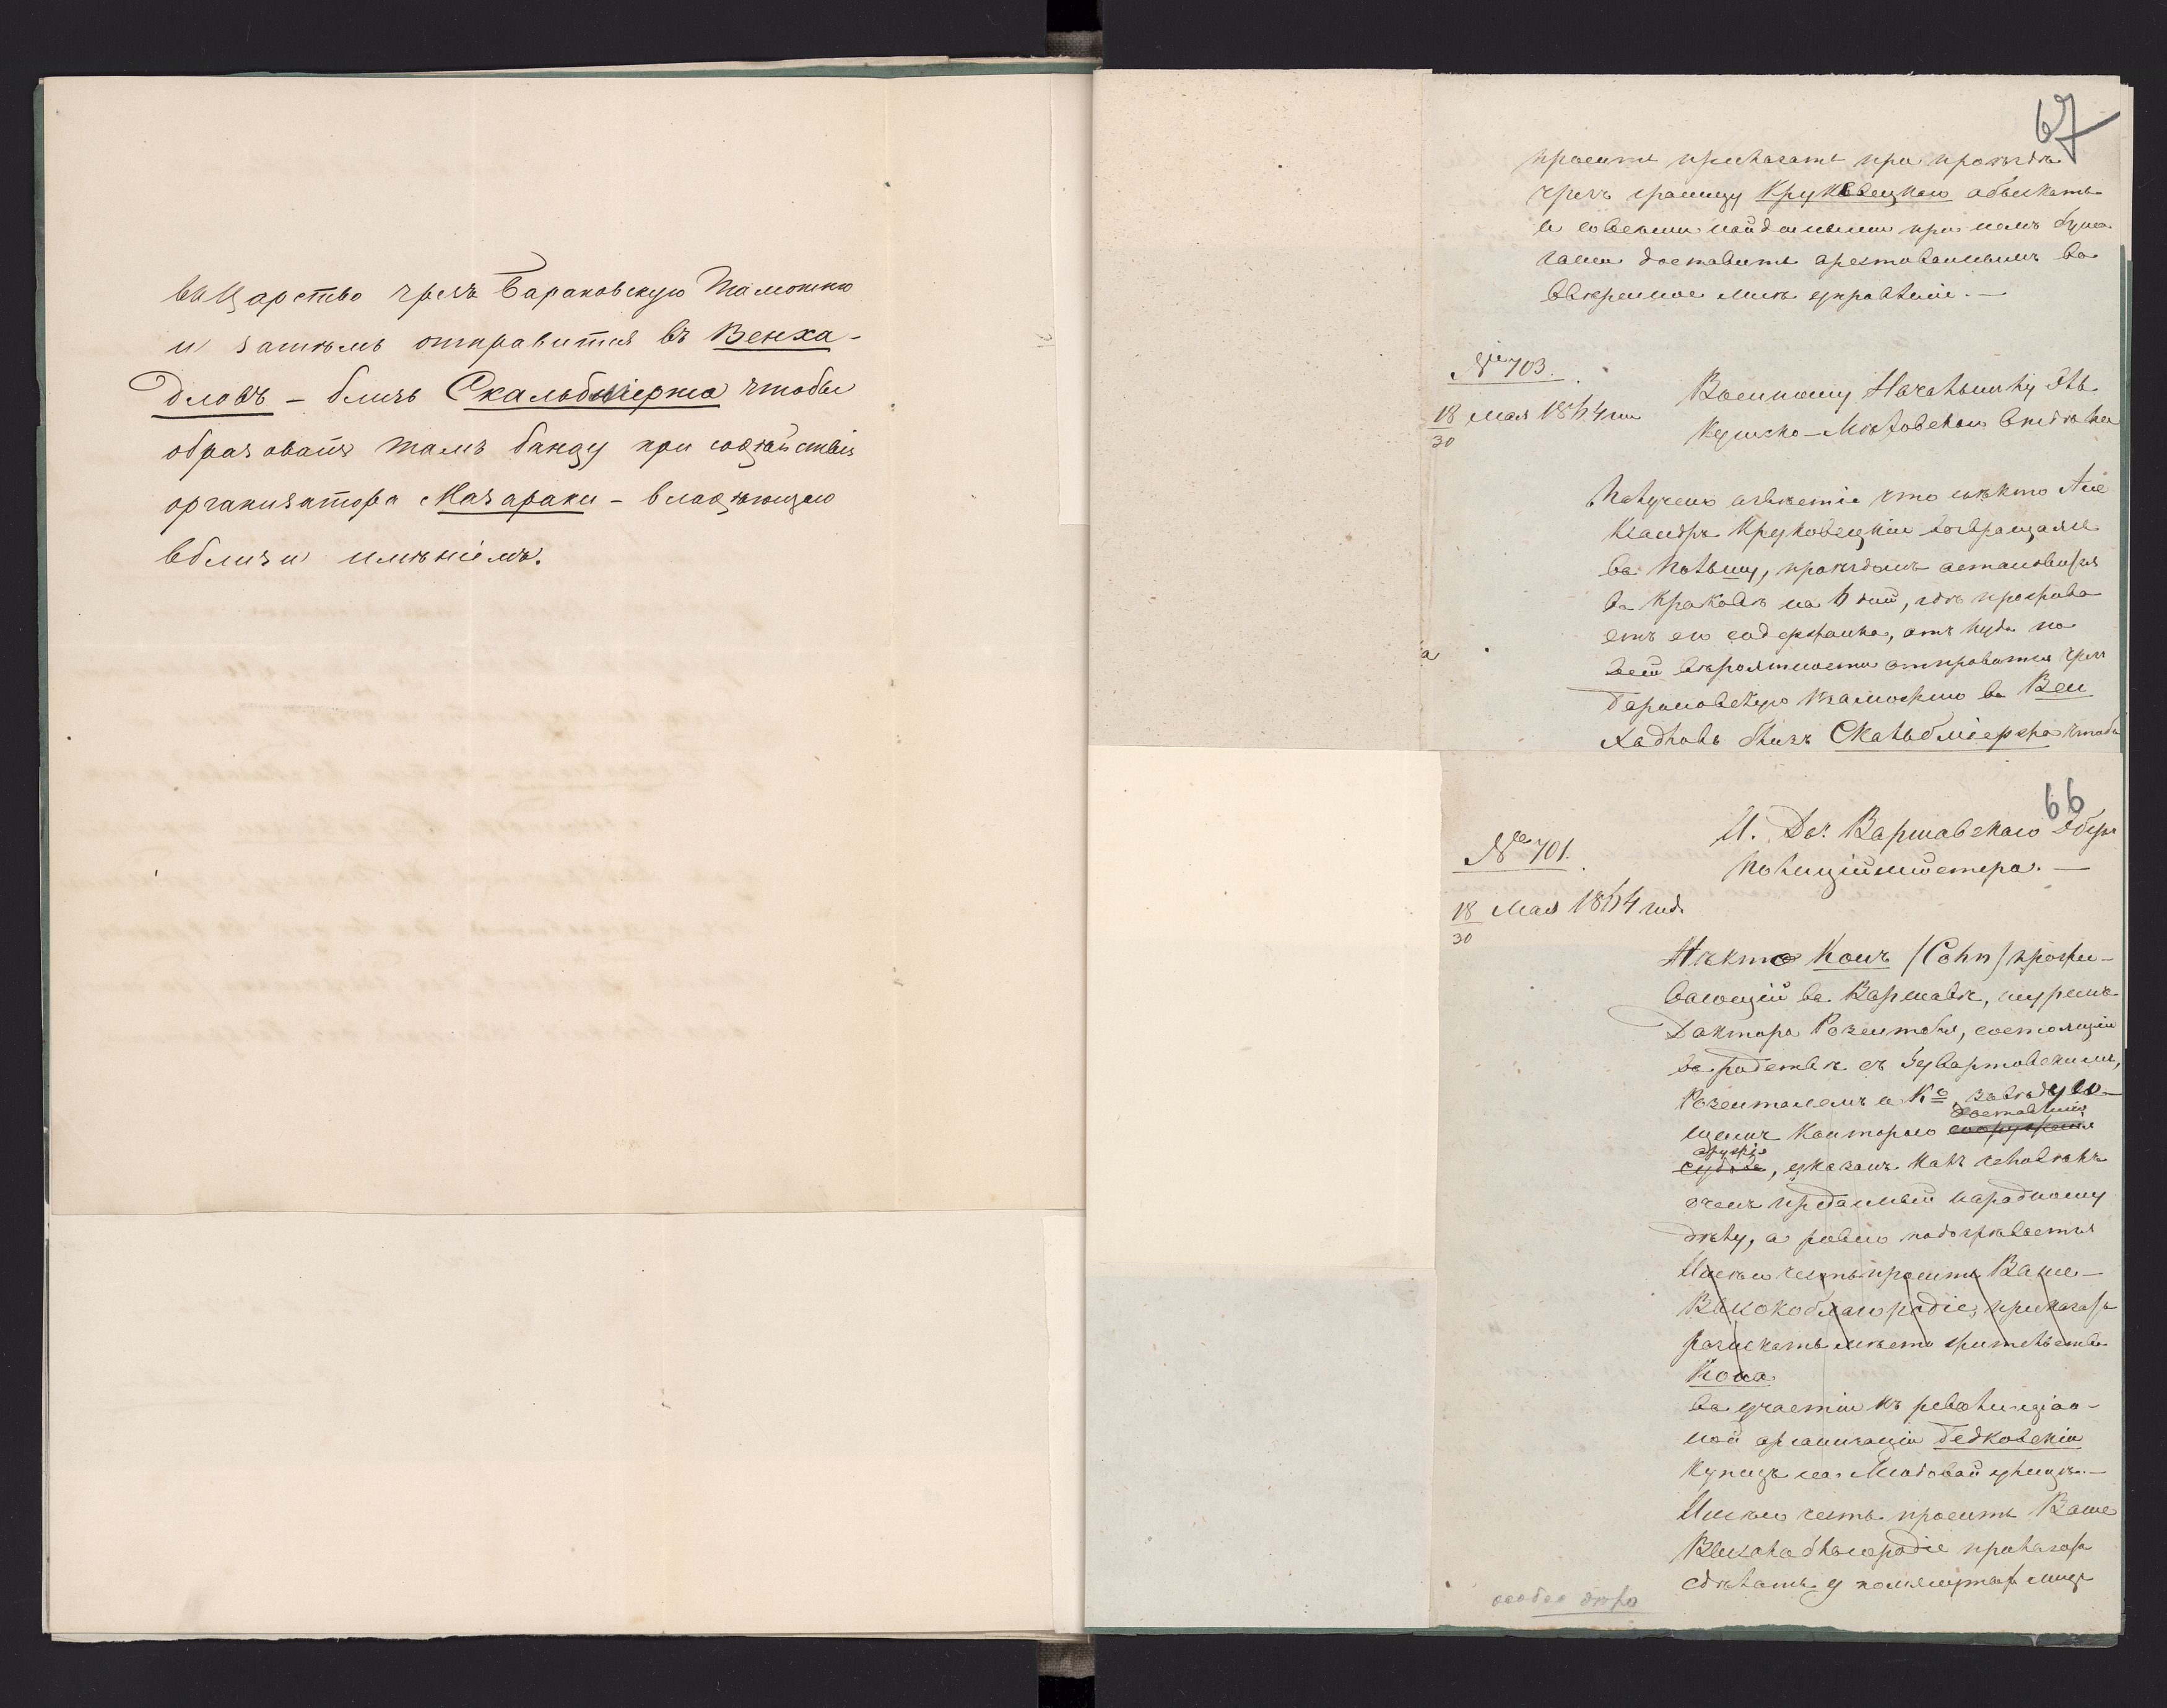 въ Царство чрезъ Барановскую Таможню
и затѣмъ отправится въ Венха-
дловъ – близь Скальбмѣржа чтобы
образовать тамъ банду при содѣйствіи
организатора Мазараки – владѣющаго
вблизи имѣніемъ.
67
просить приказать при проѣздѣ
чрезъ границу Круковецкаго обыскать
и со всѣми найденными при немъ бума-
гами доставить арестованнымъ во
ввѣренное мнѣ управленіе. —
№ 703.
18/30 Мая 1864 г.
Военному Начальнику
Мѣховскаго
Получено извѣстіе что нѣкто Але
ксандръ Круковецкій возвращаясь
въ Польшу, проѣздомъ остановился
въ Краковѣ на 6 дней, гдѣ
его, отъ куда по
всей вѣроятности отправится чрезъ
Барановскую Таможню въ Вен
хадловъ близь Скальбміержа чтобы
66
№ 701.
18/30 Мая 1864 года
И. До. Варшавскаго Оберъ
Полиціймейстера. —
Нѣкто Конъ /Cohn/ прожи-
вающій въ Варшавѣ, шуринъ
Доктора Розенталя, состоящій
въ родствѣ съ
Розенталемъ и Кº, завѣдую-
щимъ конторою
доставки
оружія, указанъ какъ человѣкъ
очень преданный народному
дѣлу, а равно подозрѣвается
Имѣю честь просить Ваше
Высокоблагородіе, приказать
разыскать мѣсто жительства
Кона
въ участіи къ революціон-
ной организаціи Бедковскій
купецъ на Медовой улицѣ. —
Имѣю честь просить Ваше
Высокоблагородіе приказать
сдѣлать у лицъ
особое дѣло